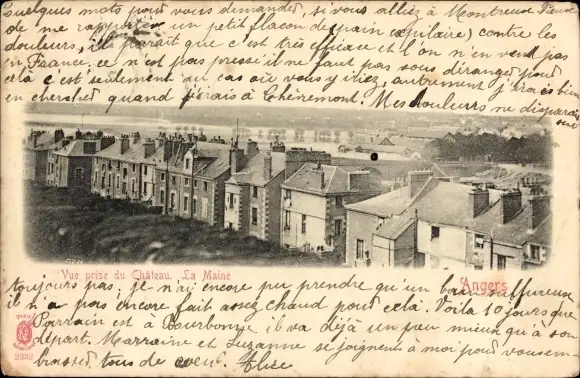 quelques mots pour vous demander, si vous alliez à Montreux
de me rapporter un petit flacon de (pain expulaire) contre les
douleurs, il paraît que c'est très efficace et l'on n'en vend pas
en France. ce n'est pas pressé il ne faut pas vous déranger pour
cela c'est seulement au cas où vous y iriez, autrement j'irais bien
en chercher quand j'irais à Chèvremont. Mes douleurs ne disparaissent
Vue prise du Château. La Maine
Angers
toujours pas; je n'ai encore pu prendre qu'un bain sulfureux
il n'a pas encore fait assez chaud pour cela. Voilà 10 jours que
Parrain est à Bourbonne, il va déjà un peu mieux qu'à son
départ. Marraine et Suzanne se joignent à moi pour vous em-
brasser tous de cœur. Alice
PARIS
2332